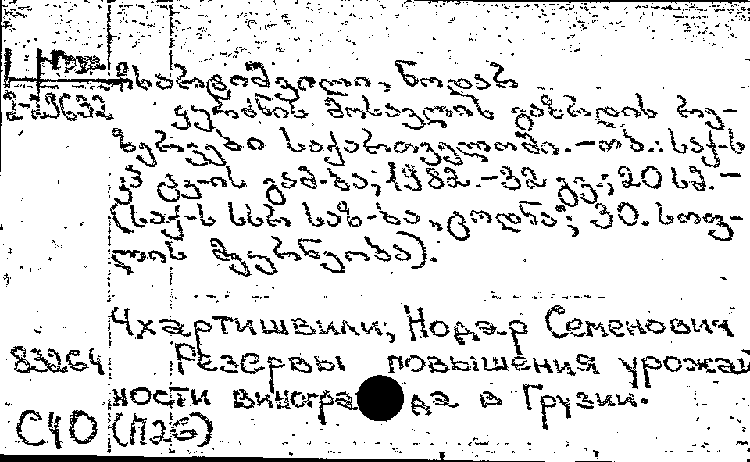 Груз
ჩხარტიშვილი, ნოდარ
2-29632 ყურძნის მოსავლის გაზრდის რე-
ზერვები საქართველოში.-თბ.: საქ-ს
კპ ცკ-ის გამ-ბა; 1982.-32 გვ.; 20 სმ.-
(საქ-ს სსრ საზ-ბა „ცოდნა“; 30. სოფ-
ლის მეურნეობა).
Чхартишвили, Нодар Семенович
83264 Резервы повышения урожай
ности винограда в Грузии.
С40 (П26)